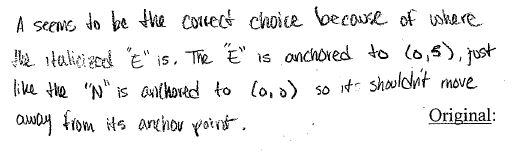 A seems to be the correct choice because of where
the italicized "E" is. The "E" is anchored to (0,5), just
like the "N" is anchored to (0,0) so it shouldn't move
away from its anchor point.
Original: